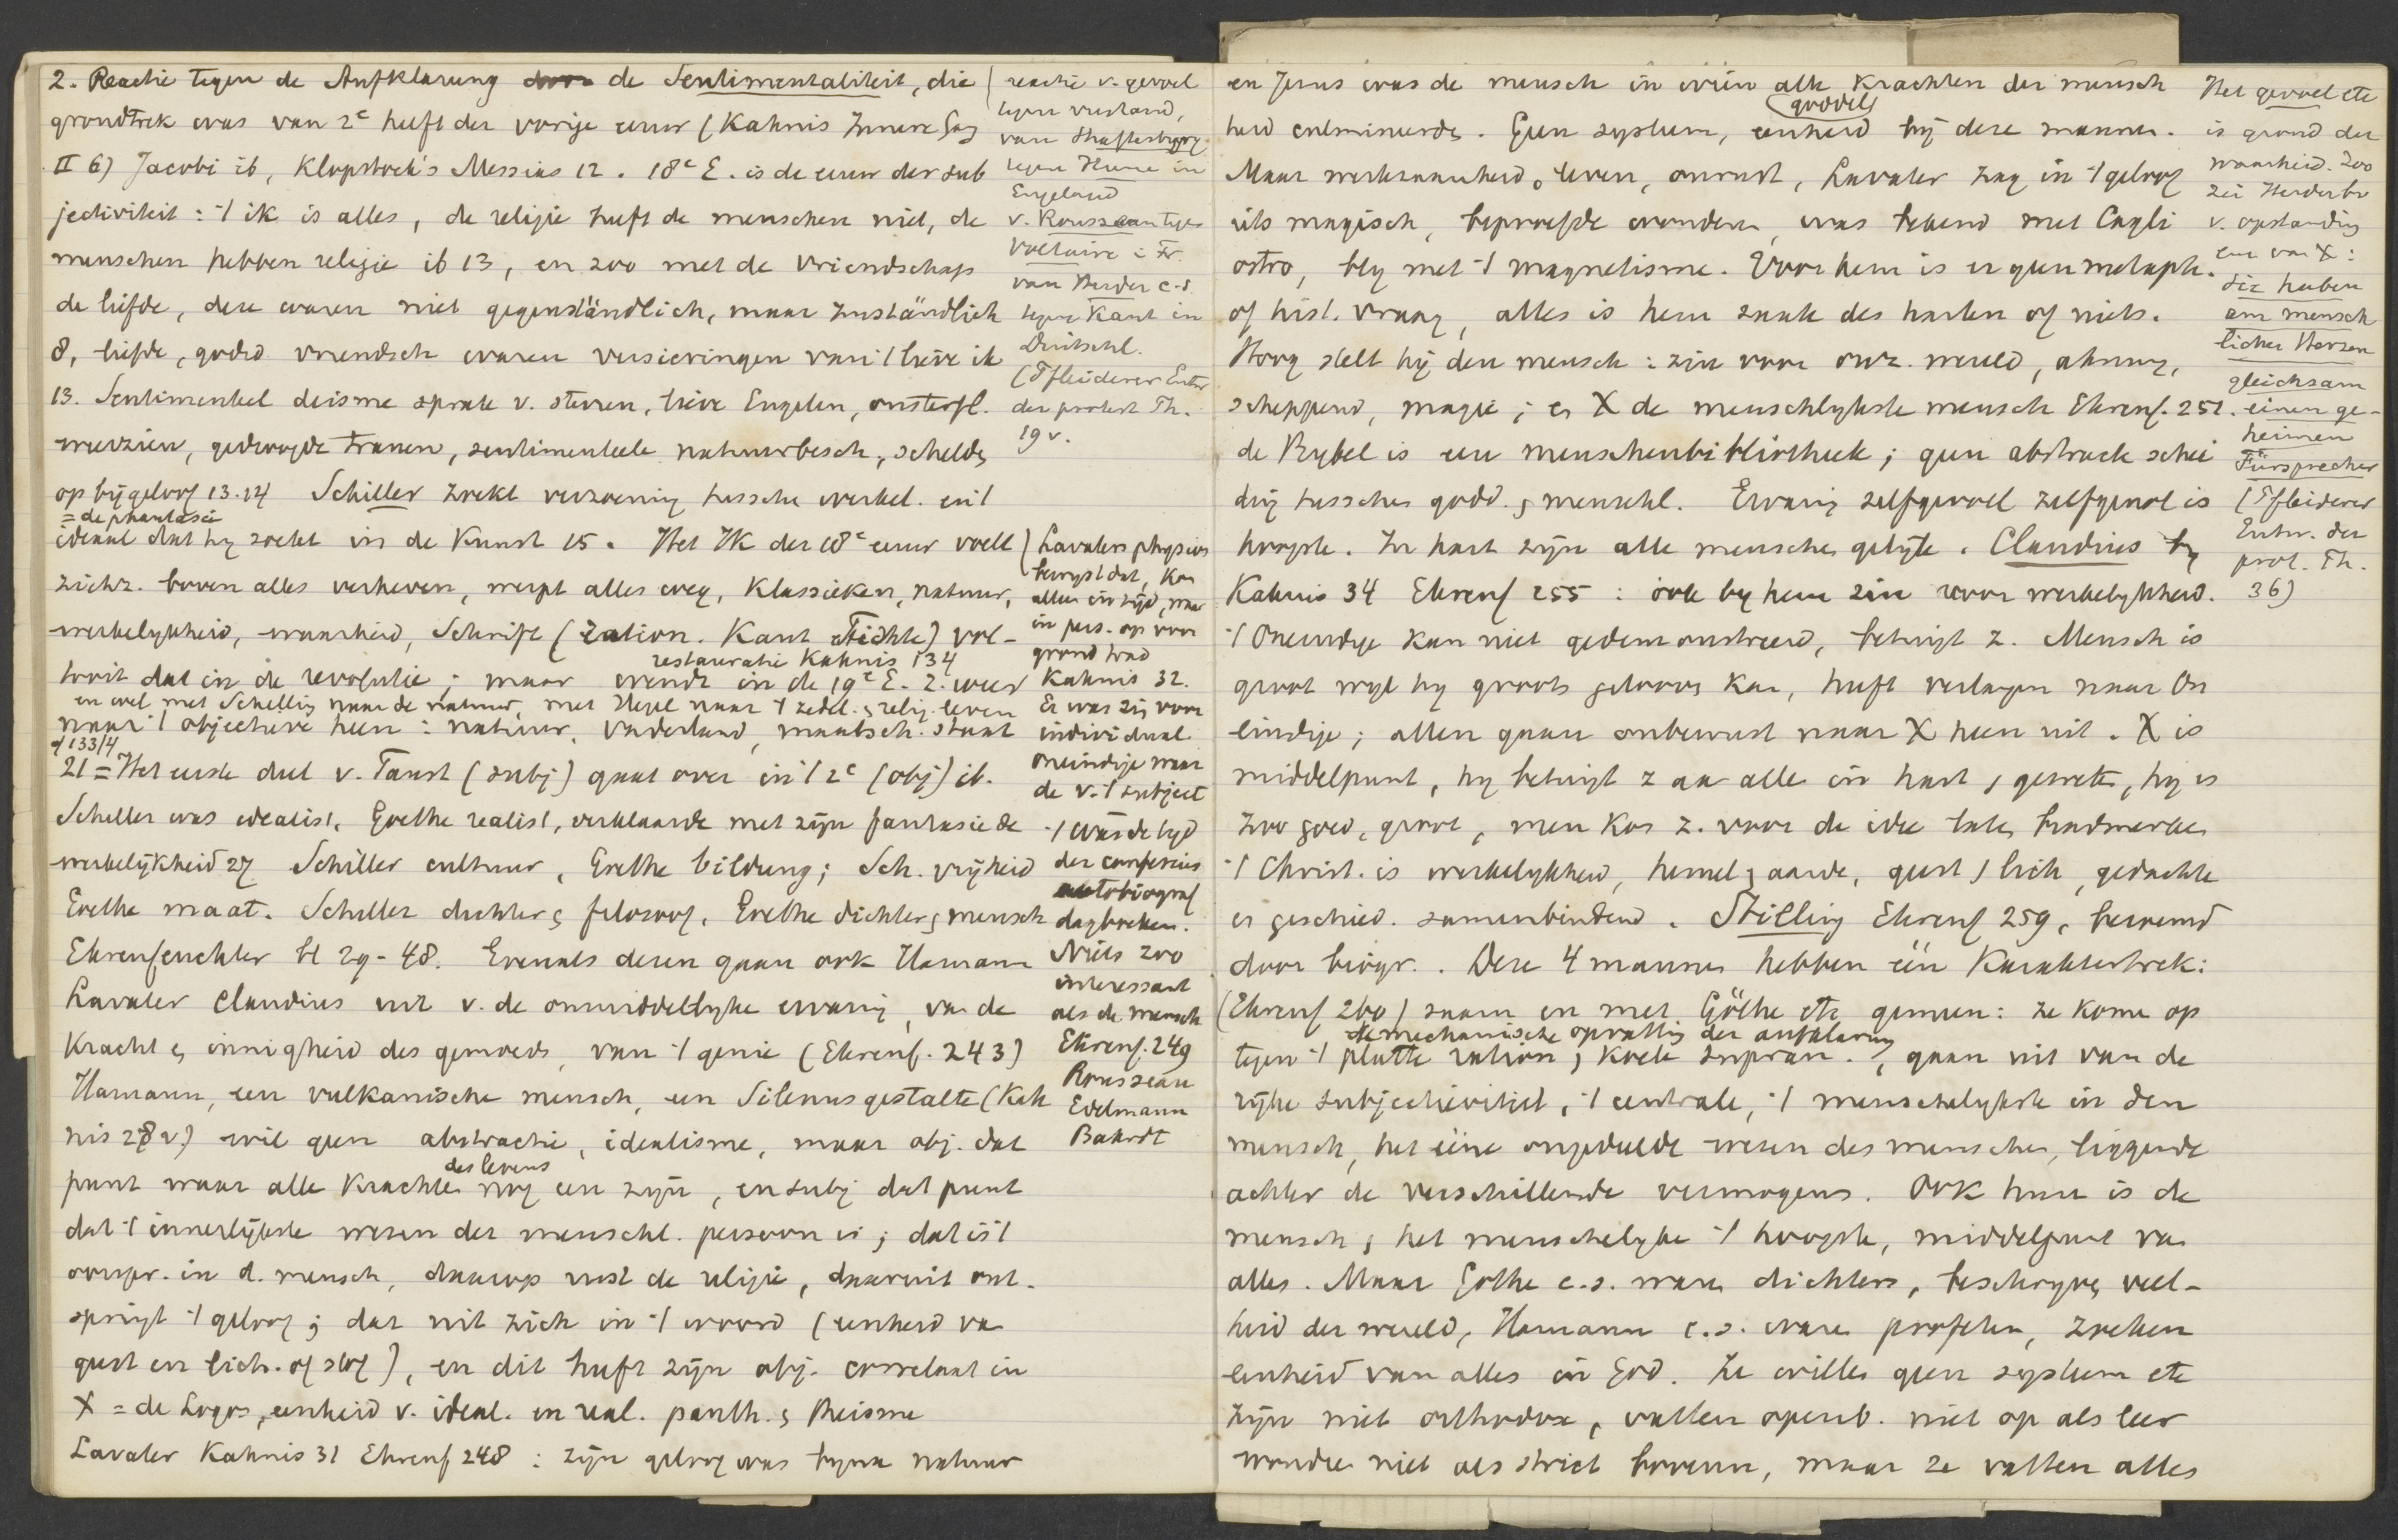 2. Reactie tegen de Aufklarung de Sentimentaliteit, die
grondtrek was van 2e helft der vorige eeuw (Kahnis Innere Gang
II 6) Jacobi ib, Klopstock's Messias 12. 18e E. is de eeuw der sub
jectiviteit: 't ik is alles, de religie heeft de menschen niet, de
menschen hebben religie ib 13, en zoo met de vriendschap
de liefde, deze waren niet gegenständlich, maar zuständlich
8, liefde, godsd vriendsch waren versieringen van 't lieve ik
13. Sentimenteel deisme sprak v. sterren, lieve Engelen, onsterfl.
weerzien, gedroogde tranen, sentimenteele natuurbesch, schelden
op bijgeloof 13.14 Schiller zoekt verzoening tusschen werkel. en 't
= de phantasie
ideaal dat hy zoekt in de Kunst 15. Het IK der 18e eeuw voelt
zichz. boven alles verheven, werpt alles weg, klassieken, natuur,
werkelykheid, waarheid, Schrift (ration. Kant Fichte) vol-
restauratie Kahnis 134
tooit dat in de revolutie; maar wendt in de 19e E. z. weer
en wel met Schelling naar de natuur, met Hegel naar 't zedel. & relig. leven
naar 't objectieve heen: natuur, vaderland, maatsch. staat
cf 133/4
21 = Het eerste deel v. Faust (subj) gaat over in 't 2e (obj) ib.
Schiller was idealist, Goethe realist, verklaarde met zijn fantasie de
werkelijkheid 27 Schiller cultuur, Goethe bildung; Sch. vrijheid
Goethe maat. Schiller dichter & filozoof, Goethe dichter & mensch
Ehrenfeuchter bl 29-48. Evenals dezen gaan ook Hamann
Lavater Claudius uit v. de onmiddellyke ervaring, van de
Kracht & innigheid des gemoeds, van 't genie (Ehrenf. 243)
Hamann, een vulkanische mensch, een Silenusgestalte (Kah
nis 28 v) wil geen abstractie, idealisme, maar obj. dat
des levens
punt waar alle Krachten nog een zijn, en subj dat punt
dat 't innerlijkste wezen der menschl. persoon is; dat is 't
oorspr. in d. mensch, daarop rust de religie, daaruit ont-
springt 't geloof; dat uit zich in 't woord (eenheid van
geest en lich. of stof), en dit heeft zijn obj. correlaat in
X = de Logos, eenheid v. ideal. en real. panth. & theisme
Lavater Kahnis 31 Ehrenf 248: zijn geloof was byna natuur
reactie v. gevoel
tegen verstand,
van Shaftesbury
tegen Hume in
Engeland
v. Rousseau tegen
Voltaire in Fr.
van Herder c.s.
tegen Kant in
Duitschl.
(Pfleiderer Entw
der protest Th.
19 v.
Lavaters physion
bewyst dat, Kon
alleen in tijd, waar
in pers. op voor
grond trad
Kahnis 32.
Er was zin voor
individual
oneindige waar
de v. 't subject
't was de tyd
der confessies
autobiograf
dagboeken.
Niets zoo
interessant
als de mensch
Ehrenf. 249
Rousseau
Edelmann
Bahrdt
en Jezus was de mensch in wien alle Krachten der mensch
(goddel)
heid culmineerden. Geen systeem, eenheid bij deze mannen.
Maar werkzaamheid, leven, onrust, Lavater zag in 't geloof
iets magisch, beproefde wonderen, was bekend met Cagli
ostro, bly met 't magnetisme. Voor hem is er geen metaph.
of hist. vraag, alles is hem zaak des harten of niets.
Hoog stelt hij den mensch: zin voor onz. wereld, ahnung,
scheppend, magie; en X de menschlykste mensch Ehrenf. 251.
de Bybel is een menschenbibliotheek; geen abstracte schei
ding tusschen godd. & menschl. Ervaring zelfgevoel zelfgenot is
hoogste. In hart zijn alle menschen gelijk. Claudius by
Kahnis 34 Ehrenf 255: ook by hem zin voor werkelykheid.
't Oneindige kan niet gedemonstreerd, betuigt z. Mensch is
groot wyl hy groots gelooven kan, heeft verlangen naar On
eindige; allen gaan onbewust naar X heen uit. X is
middelpunt, hy betuigt z aan alle in hart & geweten, hy is
zoo goed, groot, men kon z. voor de idee laten brandmerken
't Christ. is werkelykheid, hemel & aarde, geest & lich, gedachte
en geschied. samenbindend. Stilling Ehrenf 259, beroemd
door biogr.. Deze 4 mannen hebben één Karaktertrek:
(Ehrenf 260) saam en met Göthe etc gemeen: ze komen op
de mechanische opvatting der aufklarung
tegen 't platte ration & koele supran., gaan uit van de
rijke subjectieviteit, 't centrale, 't menschelykste in den
mensch, het ééne ongedeelde wezen des menschen, liggende
achter de verschillende vermogens. Ook hun is de
mensch, het menschelyke 't hoogste, middelpunt van
alles. Maar Göthe c.s. waren dichters, beschryven veel-
heid der wereld, Hamann c.s. waren profeten, zoeken
eenheid van alles in God. Ze willen geen systeem etc
zijn niet orthodox, vatten openb. niet op als leer
wonder niet als strict bovenn, maar ze vatten alles
Het gevoel etc
is grond der
waarheid. Zoo
zei Herder bv
v. opstanding
en van X:
die haben
am mensch
lichen Herzen
gleichsam
einen ge-
heimen
Fürsprecher
(Pfleiderer
Entw. der
prot. Th.
36)